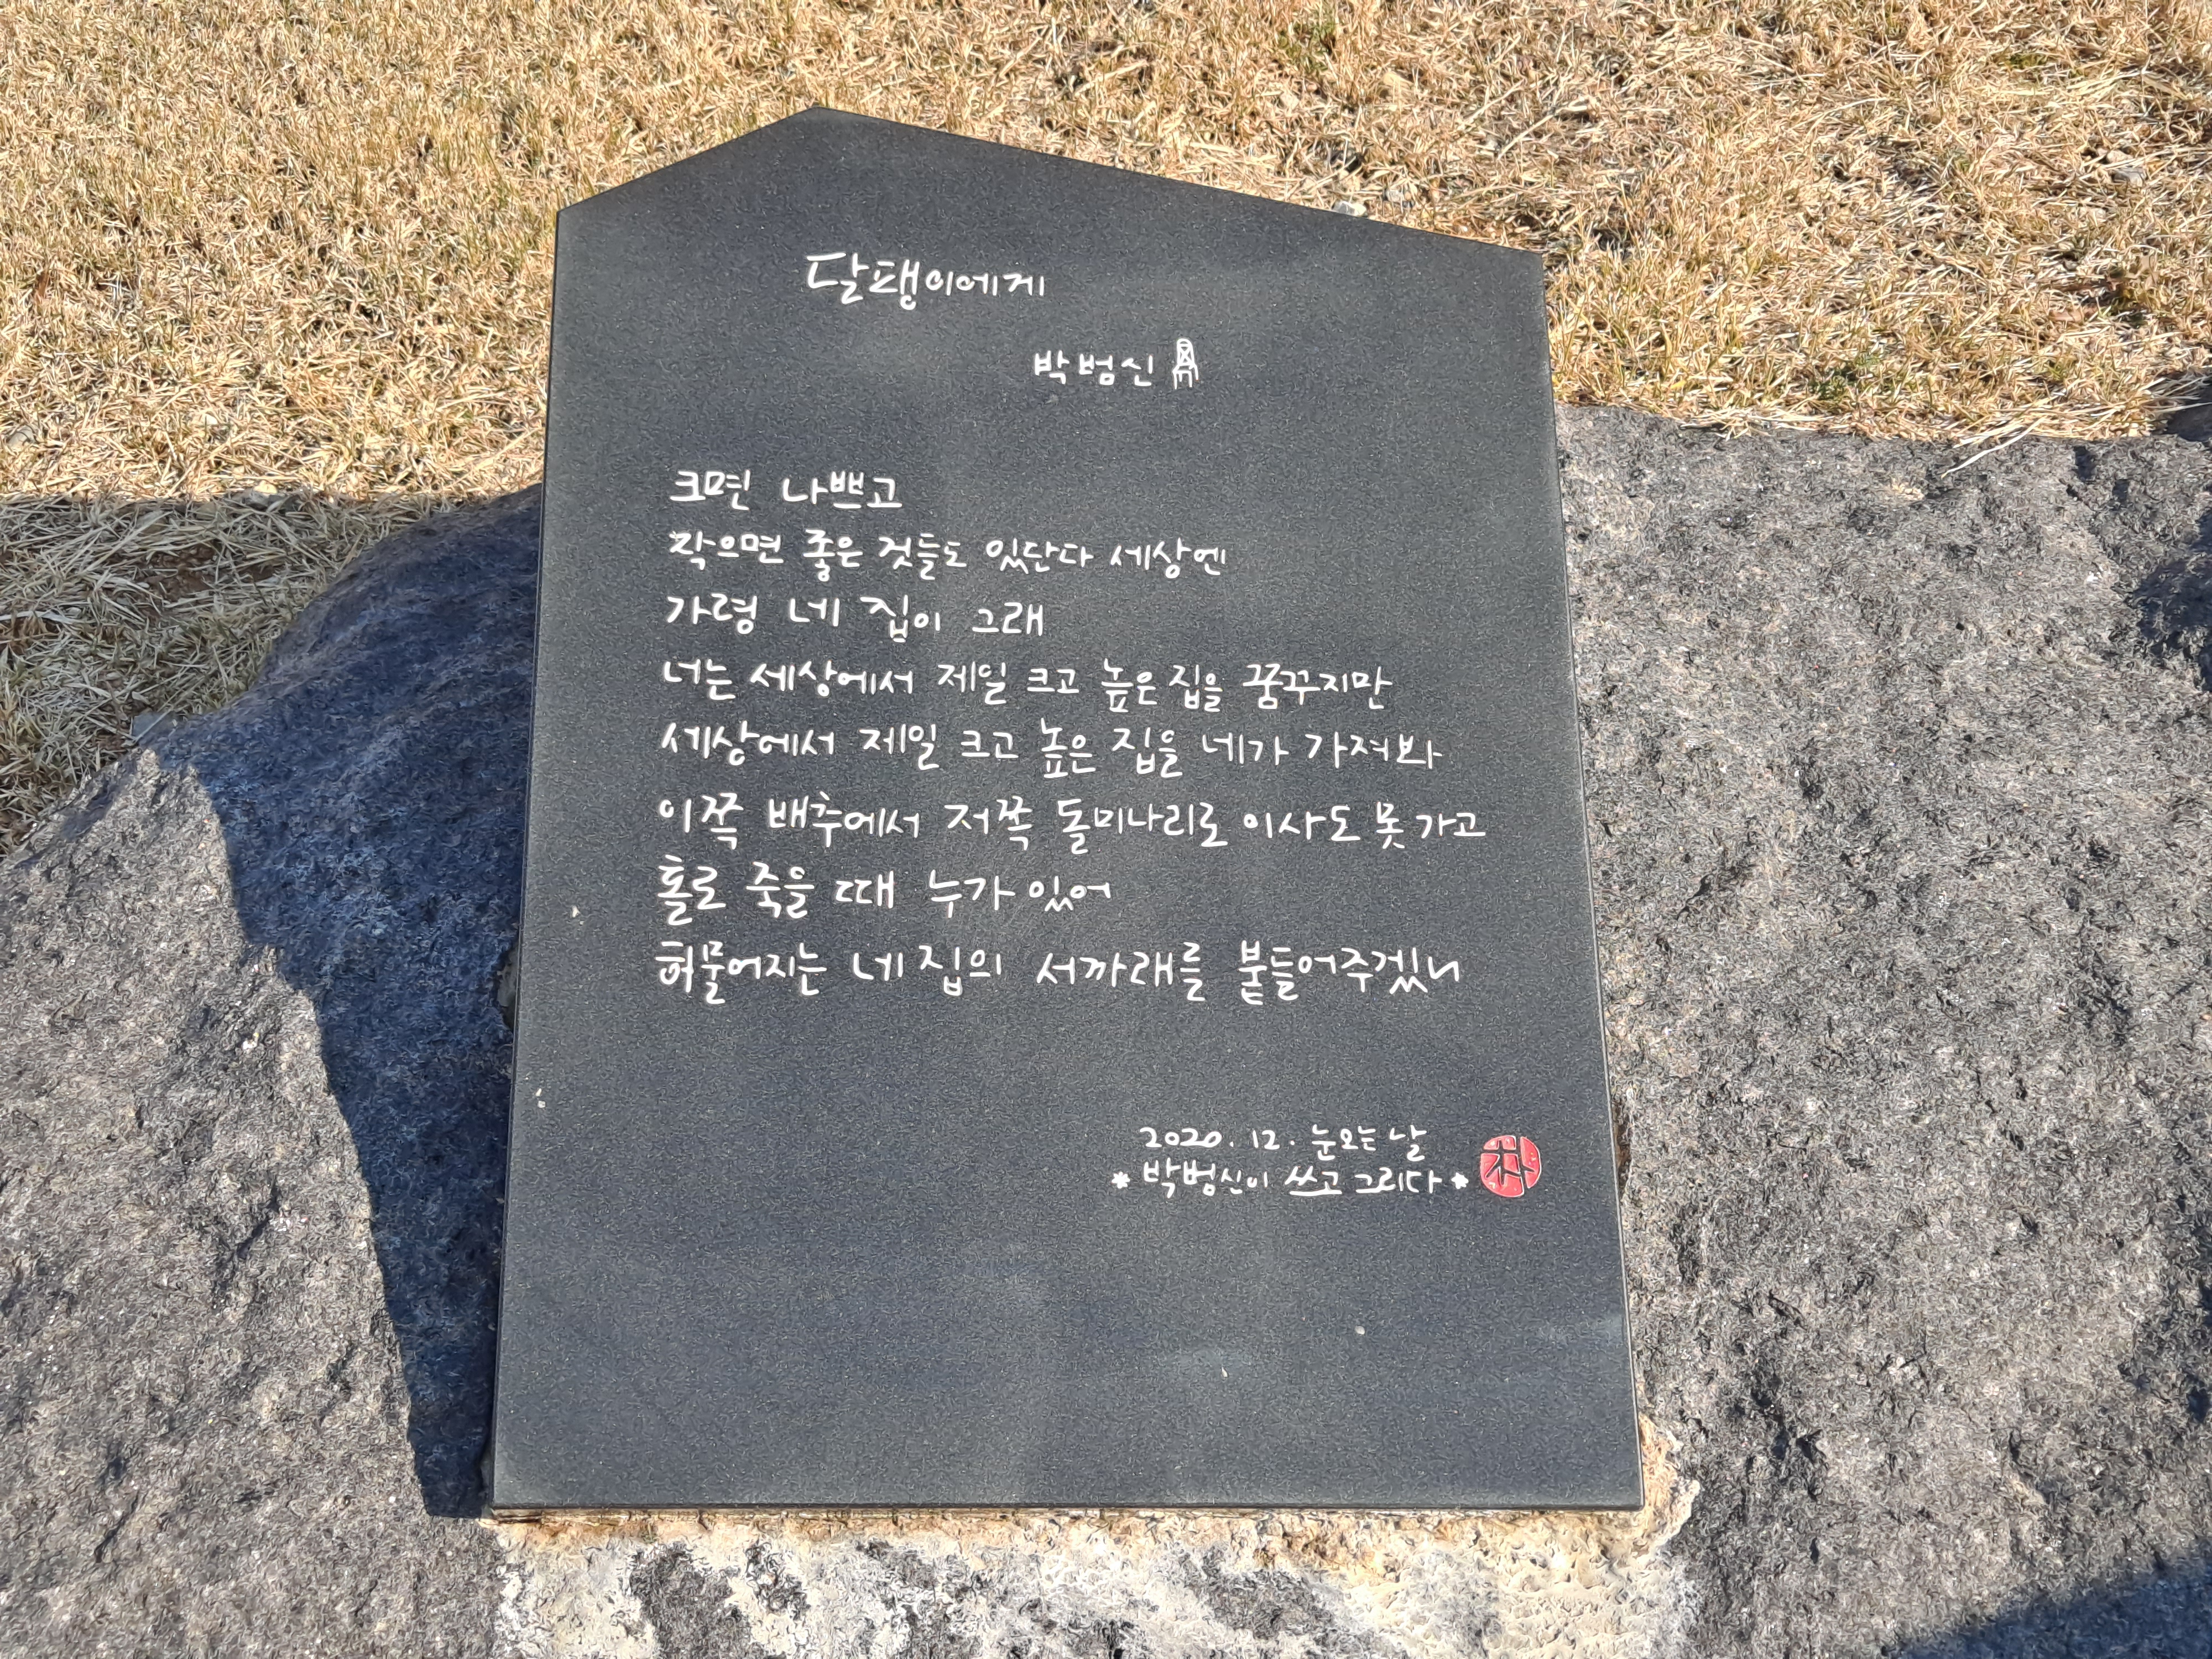 달팽이에게
박범신
크면 나쁘고
작으면 좋은 것들도 있단다 세상엔
가령 네 집이 그래
너는 세상에서 제일 크고 높은 집을 꿈꾸지만
세상에서 제일 크고 높은 집을 네가 가져봐
이쪽 배추에서 저쪽 돌미나리로 이사도 못 가고
홀로 죽을 때 누가 있어
허물어지는 네 집의 서까래를 붙들어주겠니
2020. 12. 눈오는 날
* 박범신이 쓰고 그리다 *
朴